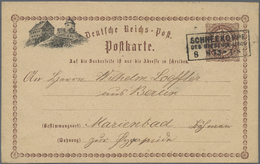 Deutsche Reichs-Post.
Postkarte.
Auf die Vorderseite ist nur die Adresse zu schreiben.
SCHNEEKOPPE
DES RIESENGEBIRGES
8
An Herrn Wilhelm Loeffler
aus Berlin
(Bestimmungsort) Marienbad Böhmen
(Wohnung) zur